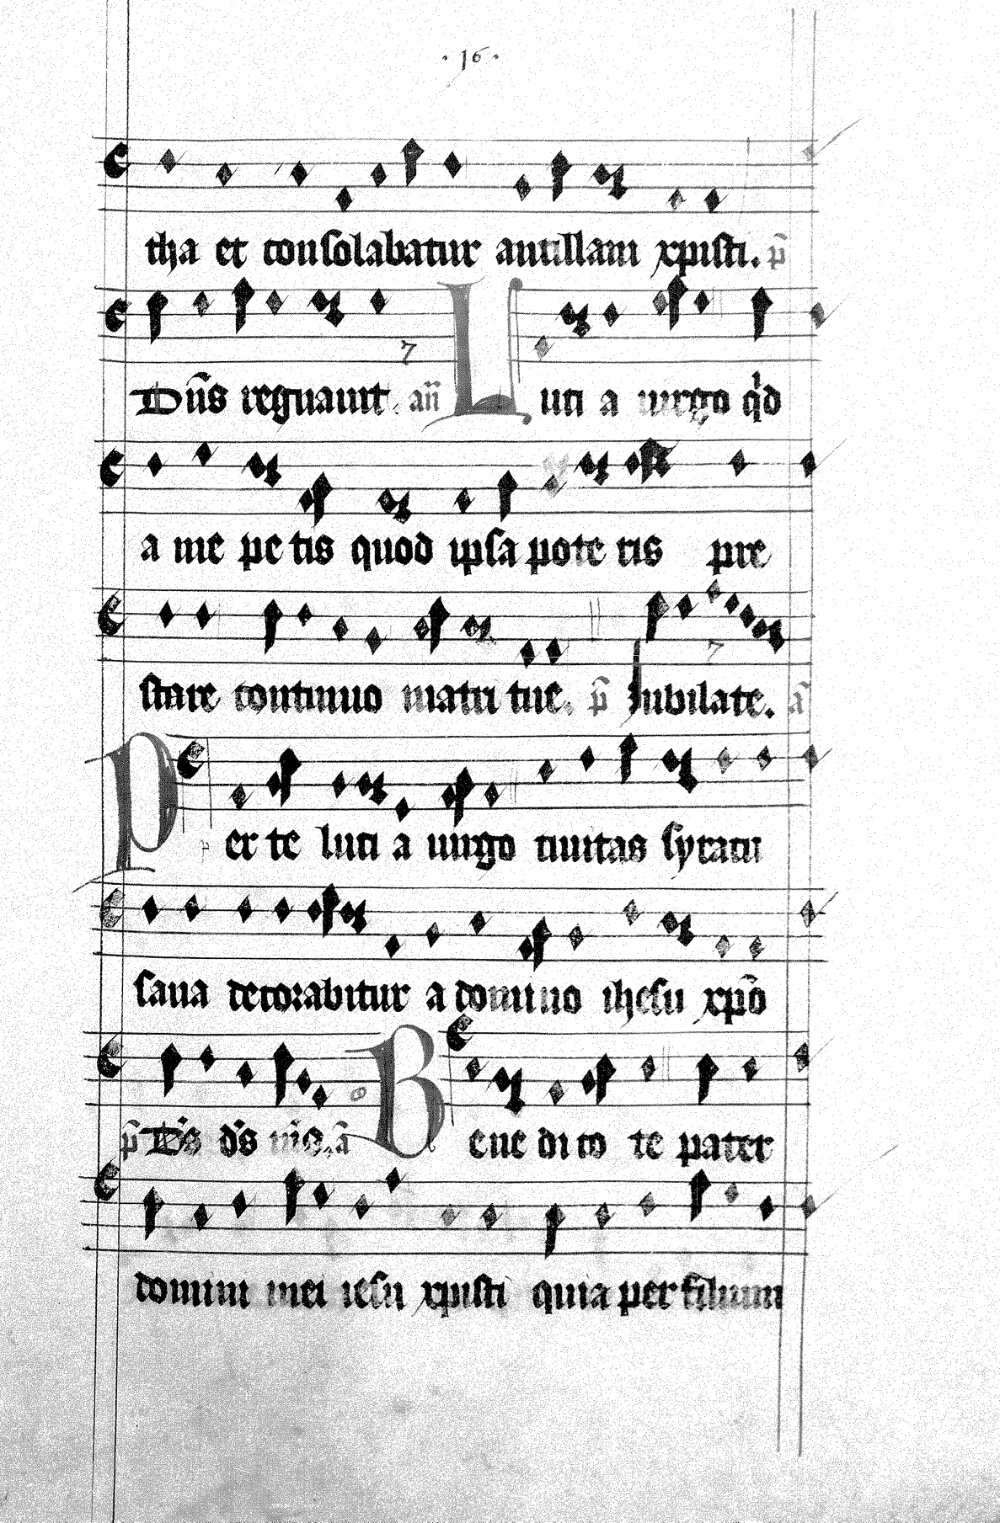 · 16 ·
tha et consolabatur ancillam xpisti. p̄
Dn̄s regnauit. an̄ Luci a uirgo qͥd
a me pe tis quod ipsa pote ris pre
stare continuo matri tue. p̄ Iubilate. ā
Per te luci a uirgo ciuitas syracu
sana decorabitur a domino ihesu xp̄o
p̄ De᷒s d̄s m̄s. ā Bene di co te pater
domini mei iesu xpisti quia per filium